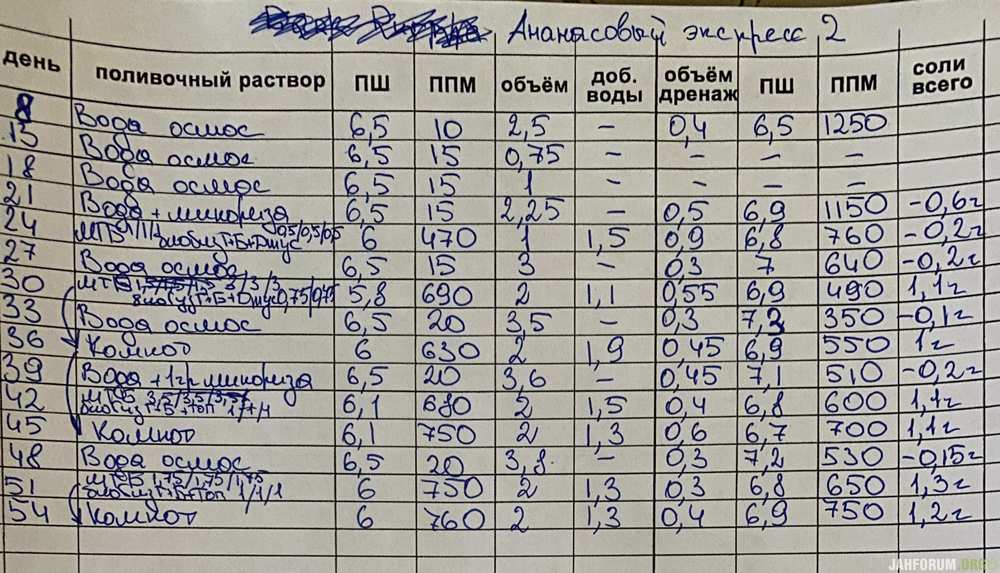 Ананасовый экспресс 2
день поливочный раствор ПШ ППМ объём доб. воды объём дренаж ПШ ППМ соли всего
8 Вода осмос 6,5 10 2,5 – 0,4 6,5 1250
15 Вода осмос 6,5 15 0,75 – – – –
18 Вода осмос 6,5 15 1 – – – –
21 Вода + микориза 6,5 15 2,25 – 0,5 6,9 1150 -0,6г
24 1/1/1 0,5/0,5/0,5 6 470 1 1,5 0,9 6,8 760 -0,2г
27 Вода осмос 6,5 15 3 – 0,3 7 640 -0,2г
30 3/3/3 0,75/0,75 5,8 690 2 1,1 0,55 6,9 490 1,1г
33 Вода осмос 6,5 20 3,5 – 0,3 7,2 350 -0,1г
36 Компот 6 630 2 1,9 0,45 6,9 550 1г
39 Вода + 1гр микориза 6,5 20 3,6 – 0,45 7,1 510 -0,2г
42 МТБ 3,5/3,5/3,5 биобизГ+Б+топ 1/1/1 6,1 680 2 1,5 0,4 6,8 600 1,1г
45 Компот 6,1 750 2 1,3 0,6 6,7 700 1,1г
48 Вода осмос 6,5 20 3,8 – 0,3 7,2 530 -0,15г
51 МТБ 1,75/1,75/1,75 биобизГ+Б+топ 1/1/1 6 750 2 1,3 0,3 6,8 650 1,3г
54 Компот 6 760 2 1,3 0,4 6,9 750 1,2г
JAHFORUM.ORG